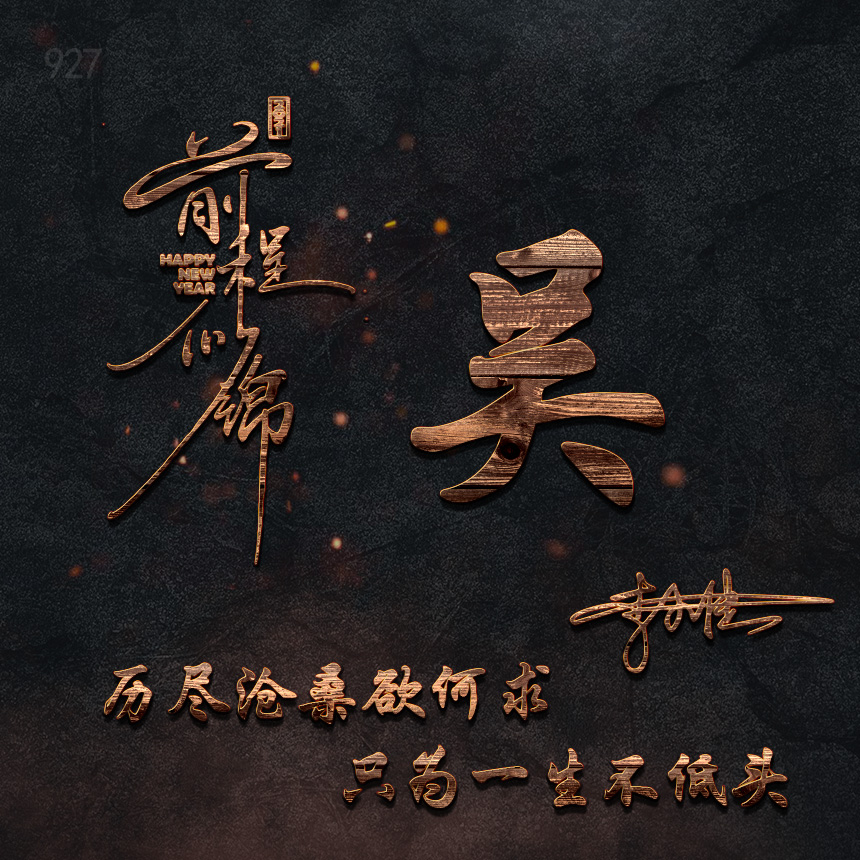 927
前程似锦
HAPPY
NEW
YEAR
吴
历尽沧桑欲何求
只为一生不低头